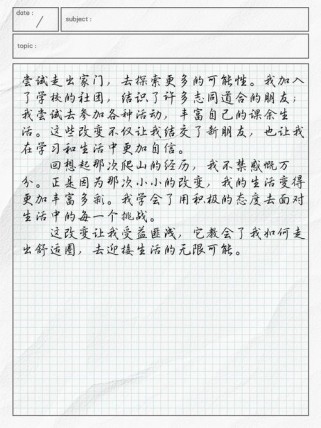 date：
subject：
topic：
尝试走出家门，去探索更多的可能性。我加入
了学校的社团，结识了许多志同道合的朋友；
我尝试去参加各种活动，丰富自己的课余生
活。这些改变不仅让我结交了新朋友，也让我
在学习和生活中更加自信。
回想起那次爬山的经历，我不禁感慨万
分。正是因为那次小小的改变，我的生活变得
更加丰富多彩。我学会了用积极的态度去面对
生活中的每一个挑战。
这改变让我受益匪浅，它教会了我如何走
出舒适圈，去迎接生活的无限可能。